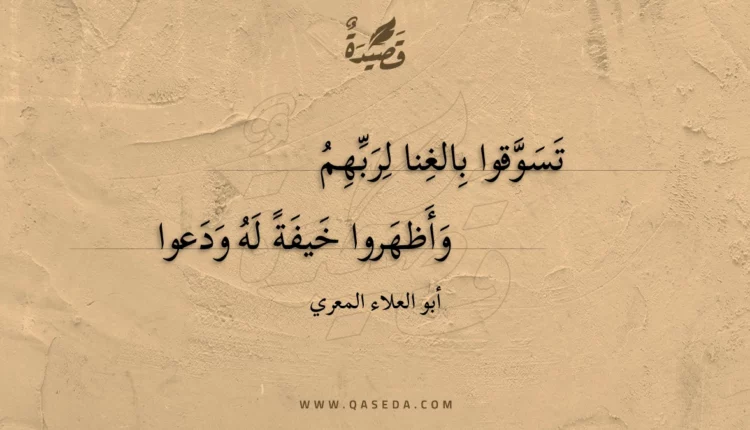 قَصِيْدَةٌ
تَسَوَّقوا بِالغِنا لِرَبِّهِمُ
وَأَظهَروا خَيفَةً لَهُ وَدَعوا
أبو العلاء المعري
WWW.QASEDA.COM